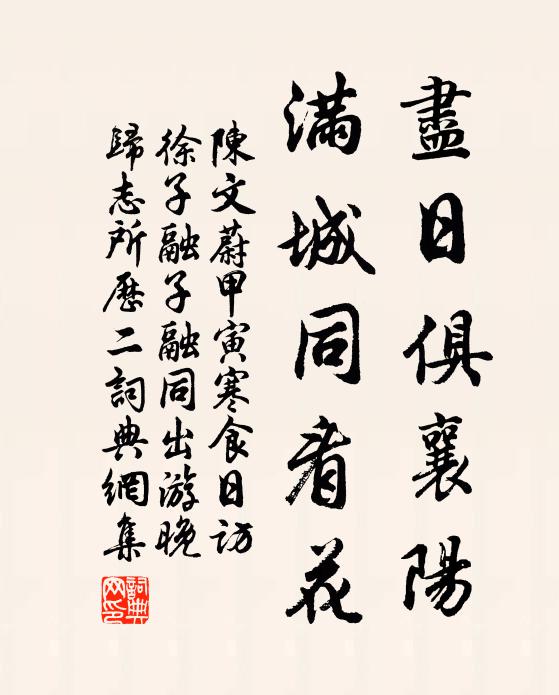 盡日俱襄陽
滿城同看花
陳文蔚甲寅寒食日訪
徐子融子融同出游晚
歸志所歷二詞典網集
詞典網印